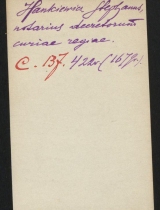 Hankiewicz Stephanus,
notarius decretorum
curiae regiae.
C. 137. 422v (1677).